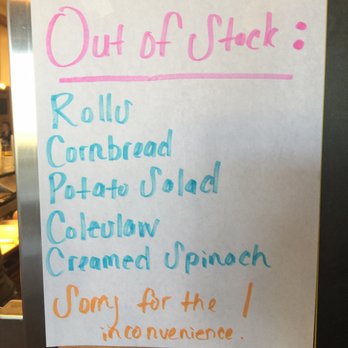 Out of Stock:
Rolls
Cornbread
Potato Salad
Coleslaw
Creamed Spinach
Sorry for the
inconvenience.